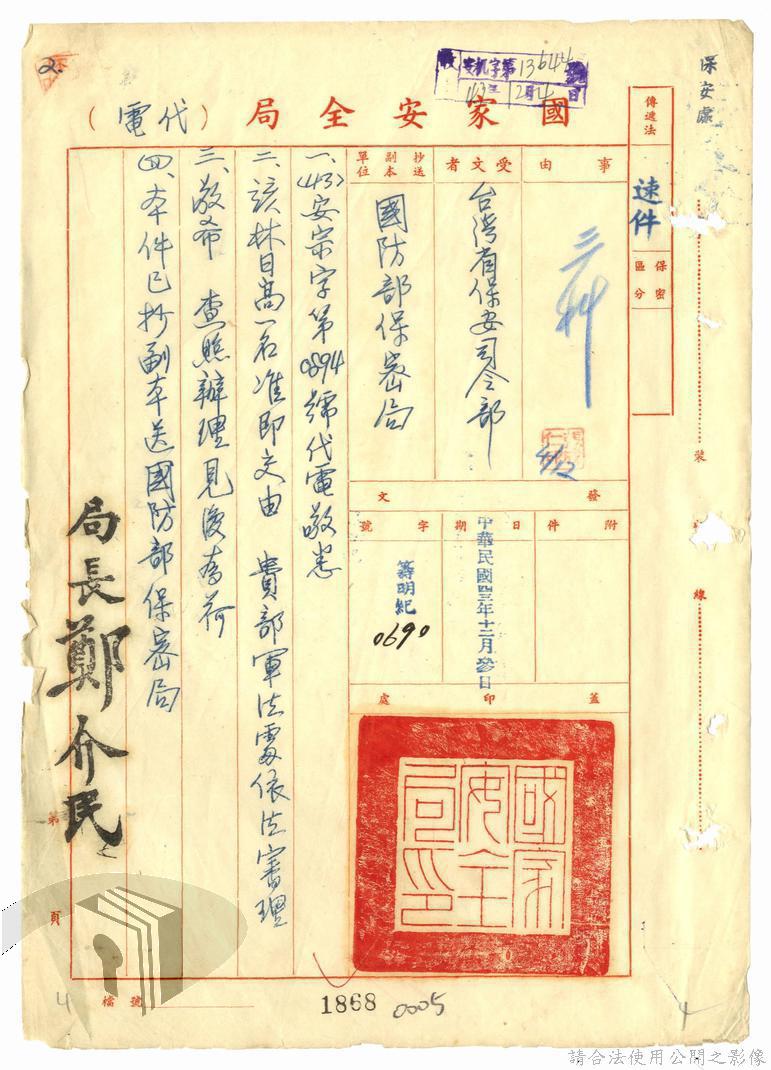 保安處
裝
線
傳遞法
速件
保密
區分
收 安机字第13644號
43年12月4日
2.
國家安全局（代電）
事由
三科
受文者
台灣省保安司令部
抄送
副本
單位
國防部保密局
發文
附件
日期
中華民國四三年十二月參日
字號
籌明紀
0690
蓋印處
國家安全局印
一、(43)安宗字第0894號代電敬悉
二、該林日高一名准即交由 貴部軍法處依法審理
三、敬希 查照辦理見復為荷
四、本件已抄副本送國防部保密局
局長鄭介民
第
頁
檔號
1868
0005
4
4
請合法使用公開之影像